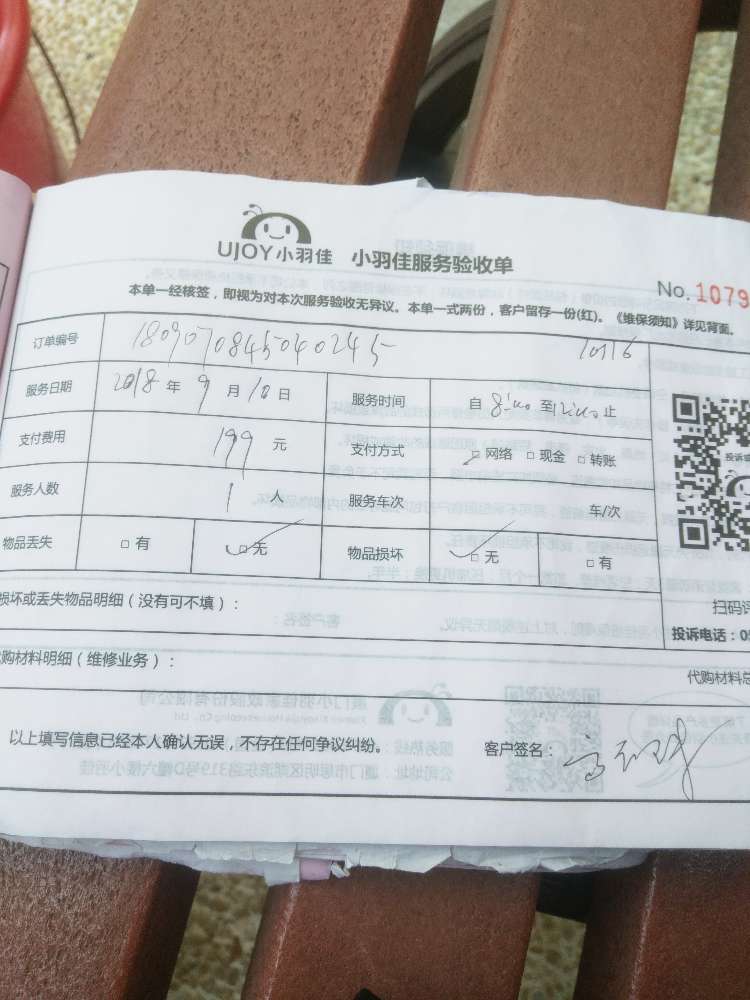 UJOY小羽佳 小羽佳服务验收单
No. 1079
本单一经核签，即视为对本次服务验收无异议。本单一式两份，客户留存一份(红)。《维保须知》详见背面。
订单编号 1809070845040245 10116
服务日期 2018年9月10日 服务时间 自8:00至12:00止
支付费用 199元 支付方式 ☑网络 □现金 □转账
服务人数 1人 服务车次 车/次
物品丢失 □有 ☑无 物品损坏 ☑无 □有
损坏或丢失物品明细（没有可不填）：
扫码评
投诉电话：05
代购材料明细（维修业务）：
代购材料总
以上填写信息已经本人确认无误，不存在任何争议纠纷。 客户签名：